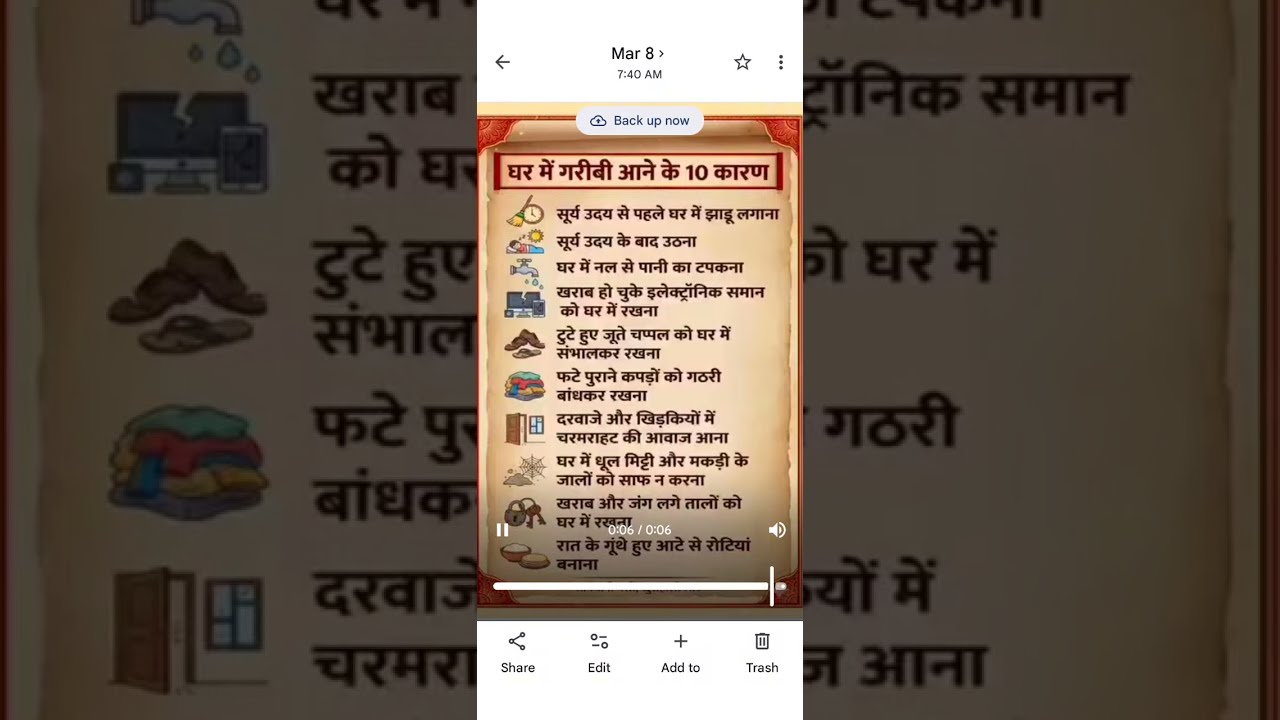 Mar 8 ›
7:40 AM
Back up now
घर में गरीबी आने के 10 कारण
सूर्य उदय से पहले घर में झाडू लगाना
सूर्य उदय के बाद उठना
घर में नल से पानी का टपकना
खराब हो चुके इलेक्ट्रॉनिक समान
को घर में रखना
टुटे हुए जूते चप्पल को घर में
संभालकर रखना
फटे पुराने कपड़ों को गठरी
बांधकर रखना
दरवाजे और खिड़कियों में
चरमराहट की आवाज आना
घर में धूल मिट्टी और मकड़ी के
जालों को साफ न करना
खराब और जंग लगे तालों को
घर में रखना
0:06 / 0:06
रात के गूंथे हुए आटे से रोटियां
बनाना
Share
Edit
Add to
Trash
खराब
ट्रॉनिक समान
को घर
टुटे हुए
को घर में
संभाल
फटे पु
गठरी
बांधक
दरवाजे
यों में
चरमरा
ज आना